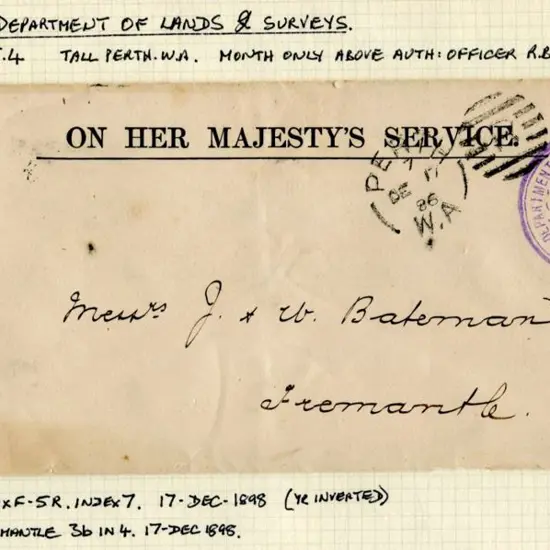 DEPARTMENT OF LANDS & SURVEYS.
.4 TALL PERTH.W.A. MONTH ONLY ABOVE AUTH: OFFICER R.B
ON HER MAJESTY'S SERVICE.
PE
DE 17
86
W.A
DEPARTMENT
Messrs J. & W. Bateman
Fremantle.
XF-5R. INDEX 7. 17-DEC-1898 (YR INVERTED)
MANTLE 3b IN 4. 17-DEC 1898.